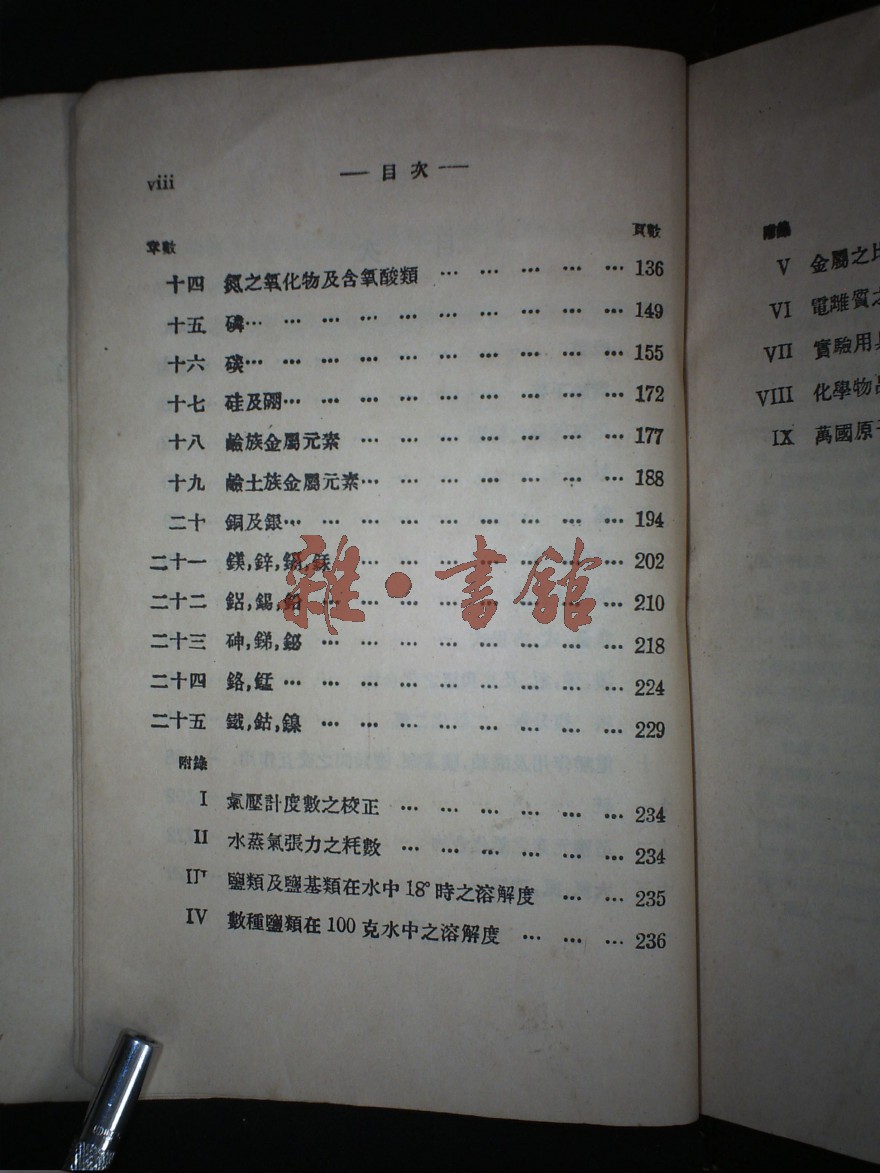 viii
— 目次 —
章數 頁數
十四 氮之氧化物及含氧酸類 … … … … … 136
十五 磷… … … … … … … … … … 149
十六 碳… … … … … … … … … … 155
十七 硅及硼… … … … … … … … … 172
十八 鹼族金屬元素 … … … … … … … 177
十九 鹼土族金屬元素… … … … … … … 188
二十 銅及銀… … … … … … … … … 194
二十一 鎂,鋅,鎘,銾 … … … … … … … 202
二十二 鋁,錫,鉛 … … … … … … … … 210
二十三 砷,銻,鉍 … … … … … … … … 218
二十四 鉻,錳… … … … … … … … … 224
二十五 鐵,鈷,鎳 … … … … … … … … 229
附錄
I 氣壓計度數之校正 … … … … … … 234
II 水蒸氣張力之粍數 … … … … … … 234
III 鹽類及鹽基類在水中18°時之溶解度 … … 235
IV 數種鹽類在100克水中之溶解度 … … … 236
雜·書館
附錄
V 金屬之比
VI 電離質之
VII 實驗用
VIII 化學物
IX 萬國原子